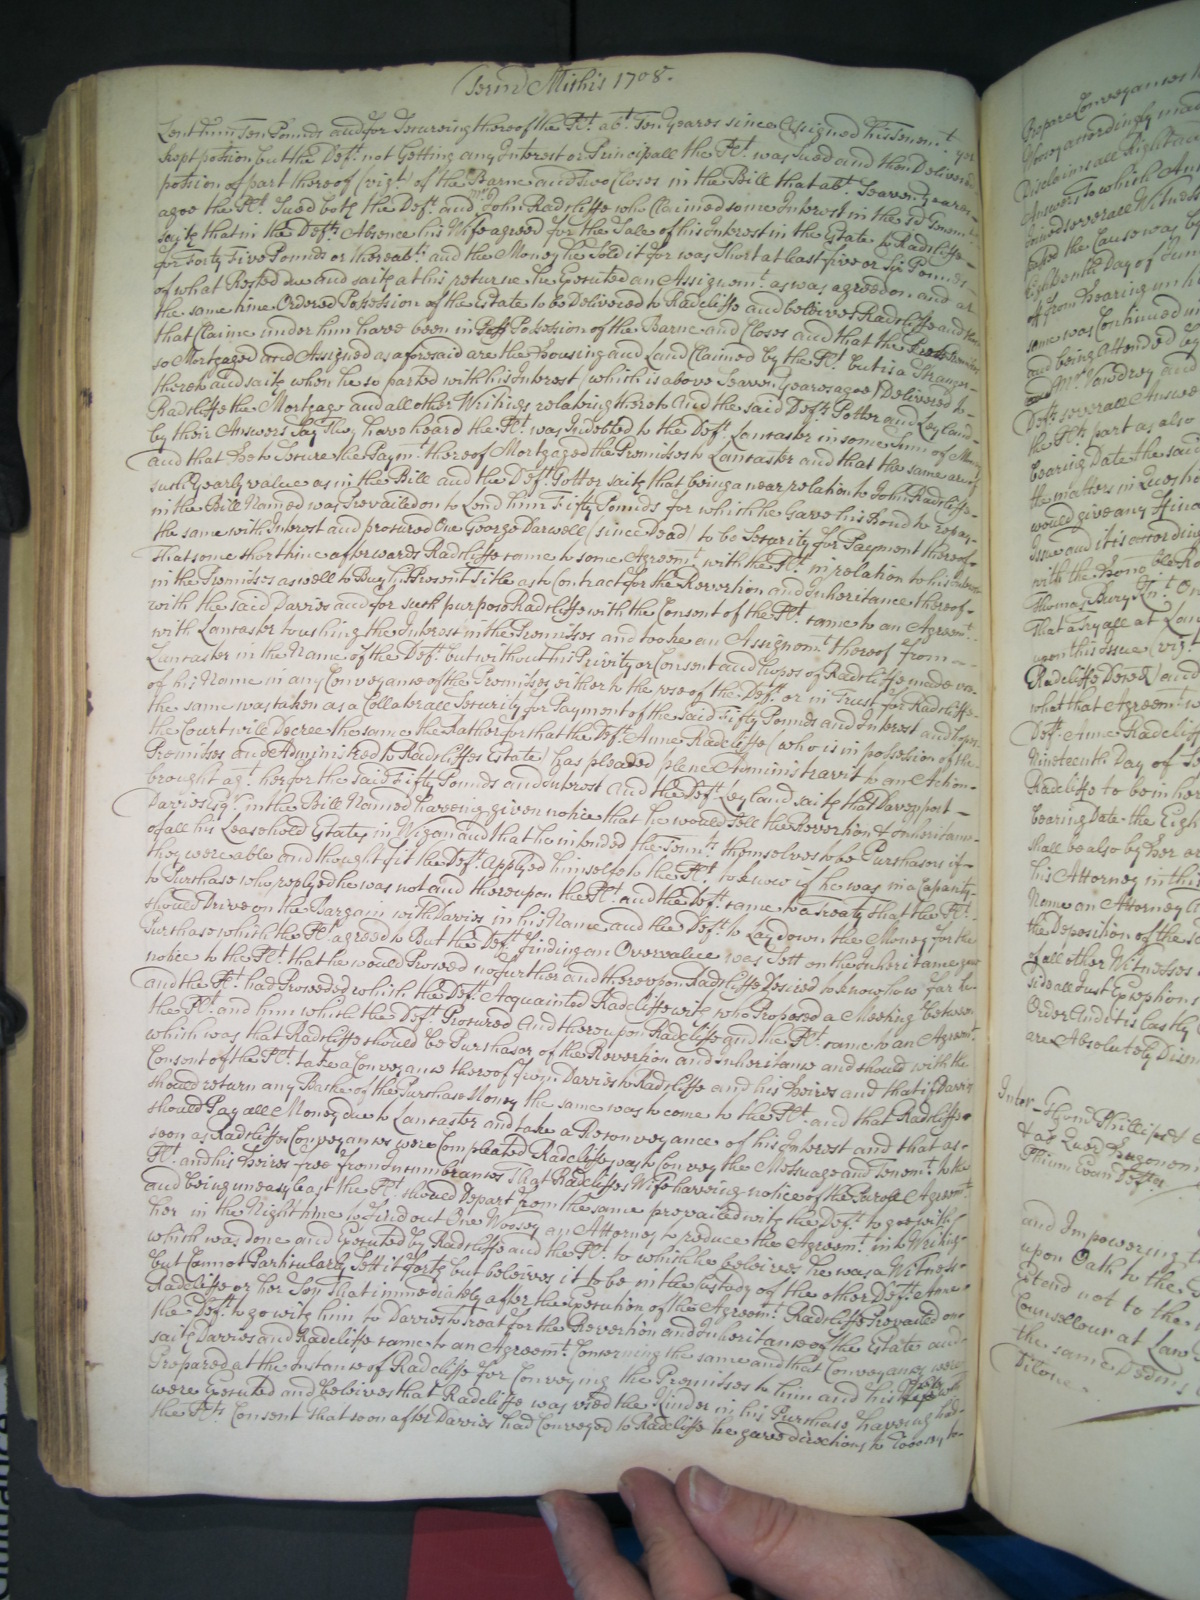 Term Michis 1708.
Lent him Ten Pounds and for Secureing thereof the Plt. abt. Ten Yeares since Assigned his Tenemt. yet
kept possion but the Deft. not Getting any Interest or Principall the Plt. was Sued and then Delivered
possion of part thereof (vizt.) of the Barne and Two Closes in the Bill that abt. Seaven Yeares
agoe the Plt. Sued both the Deft. and Mr John Radcliffe who Claimed some Interest in the sd Tenemt.
saith that in the Defts. Absence his Wife agreed for the Sale of his Interest in the Estate to Radcliffe
for Forty Five Pounds or thereabts. and the Money he Sold it for was Short at least five or Six Pounds
of what Rested due and saith at his returne he Executed an Assignmt. as was agreed on and at
the same time Ordered Possession of the Estate to be Delivered to Radcliffe and beleives Radcliffe and those
that Claime under him have been in Possession of the Barne and Closes and that the
so Mortgaged and Assigned as aforesaid are the Housing and Land Claimed by the Plt. but is a Stranger
thereto and saith when he so parted with his Interest (which is above Seaven Yeares agoe) Delivered to
Radcliffe the Mortgage and all other Writings relateing thereto And the said Defts. Potter and Leyland
by their Answers Say They have heard the Plt. was Indebted to the Deft. Lancaster in some Sum of Money
and that He to Secure the Paymt. thereof Mortgaged the Premisses to Lancaster and that the same are of
such Yearly value as in the Bill and the Deft. Potter saith that being a near relation to John Radcliffe
in the Bill Named was Prevailed on to Lend him Fifty Pounds for which he Gave his Bond to repay
the same with Interest and procured One George Darwell (since Dead) to be Security for Payment thereof
That some short time afterwards Radcliffe came to some Agreemt. with the Plt. in relation to his Interest
in the Premisses as well to Buy his Present Title as to Contract for the Revertion and Inheritance thereof
with the said Davies and for such purpose Radcliffe with the Consent of the Plt. came to an Agreemt.
with Lancaster touching the Interest in the Premisses and tooke an Assignmt. thereof from
Lancaster in the Name of the Deft. but without his Privity or Consent and hopes if Radcliffe made use
of his Name in any Conveyance of the Premisses either to the use of the Deft. or in Trust for Radcliffe
the same was taken as a Collaterall Security for Payment of the said Fifty Pounds and Interest and hopes
the Court will Decree the same the Rather for that the Deft. Anne Radcliffe (who is in possession of the
Premisses and Administred to Radcliffes Estate) has pleaded plene Administravit to an Action
brought agt. her for the said Fifty Pounds and Interest And the Deft. Leyland saith that Davenport
Davies Esqr. in the Bill Named haveing given notice that he would Sell the Revertion & Inheritance
of all his Leasehold Estates in Wigan and that he intended the Tennts. themselves to be Purchasors if
they were able and thought fit the Deft. applyed himselfe to the Plt. to know if he was in a Capacity
to Purchase who replyed he was not and thereupon the Plt. and the Deft. came to a treaty that the Plt.
should Drive on the Bargain with Davies in his Name and the Deft. to Lay down the Money for the
Purchase which the Plt. agreed to But the Deft. finding an Overvalue was Sett on the Inheritance gave
notice to the Plt. that he would Proceed no further and thereupon Radcliffe Desired to know how far he
and the Plt. had Proceeded which the Deft. Acquainted Radcliffe with who Proposed a Meeting between
the Plt. and him which the Deft. Procured And thereupon Radcliffe and the Plt. came to an Agreemt.
which was that Radcliffe should be Purchasor of the Revertion and Inheritance and should with the
Consent of the Plt. take a Conveyance thereof from Davies to Radcliffe and his Heires and that if Davies
should return any Backe of the Purchase Money the same was to come to the Plt. and that Radcliffe
should Pay all Money due to Lancaster and take a Reconveyance of his Interest and that as
soon as Radcliffes Conveyances were Compleated Radcliffe was to Convey the Messuage and Tenemt. to the
Plt. and his Heires free from Incumbrances That Radcliffes Wife haveing notice of the Agreemt.
and being uneasy least the Plt. should Depart from the same prevailed with the Deft. to goe with
her in the Night time to find out One Woosey an Attorney to reduce the Agreemt. into Writing
which was done and Executed by Radcliffe and the Plt. to which he beleives he was a Witness
but Cannot Particularly Sett it forth but beleives it to be in the Custody of the other Deft. Anne
Radcliffe or her Son That immediately after the Execution of the Agreemt. Radcliffe Prevailed on
the Deft. to go with him to Davies to treat for the Revertion and Inheritance of the Estate and
saith Davies and Radcliffe came to an Agreemt. Concerning the same and that Conveyances were
Prepared at the Instance of Radcliffe for Conveying the Premisses to him and his
were Executed and beleives that Radcliffe was used the Kinder in his Purchase haveing had
the Plts. Consent That soon after Davies had Conveyed to Radcliffe he gave directions to Woosey to
Prepare Conveyances
accordingly made
Disclaims all Right
Answers To which
severall Witness
the Cause was by
Eighteenth Day of
from hearing
same was Continued
and being Attended by
Mr. Vawdrey and
Defts. severall Answe
the Plts. part as also
bearing Date the said
the matters in Questio
would give any
Issue and it is accordin
with the Honoble.
Thomas Bury Knt. On
That a tryall at Lan
upon this Issue (vizt
Radcliffe Deced) and
what that Agreemt. w
Deft. Anne Radcliff
Nineteenth Day of Se
Radcliffe to be in her
bearing Date the Eigh
shall be also by her or
his Attorney in this
Name an Attorney
the Deposition of the
of all other Witnesses
side all Just Exceptions
Order And it is lastly
are Absolutely Dism
Inter
Thirum Evan Deft.
and Impowering
upon Oath to the
Extend not to the
Counsellour at Law
the same